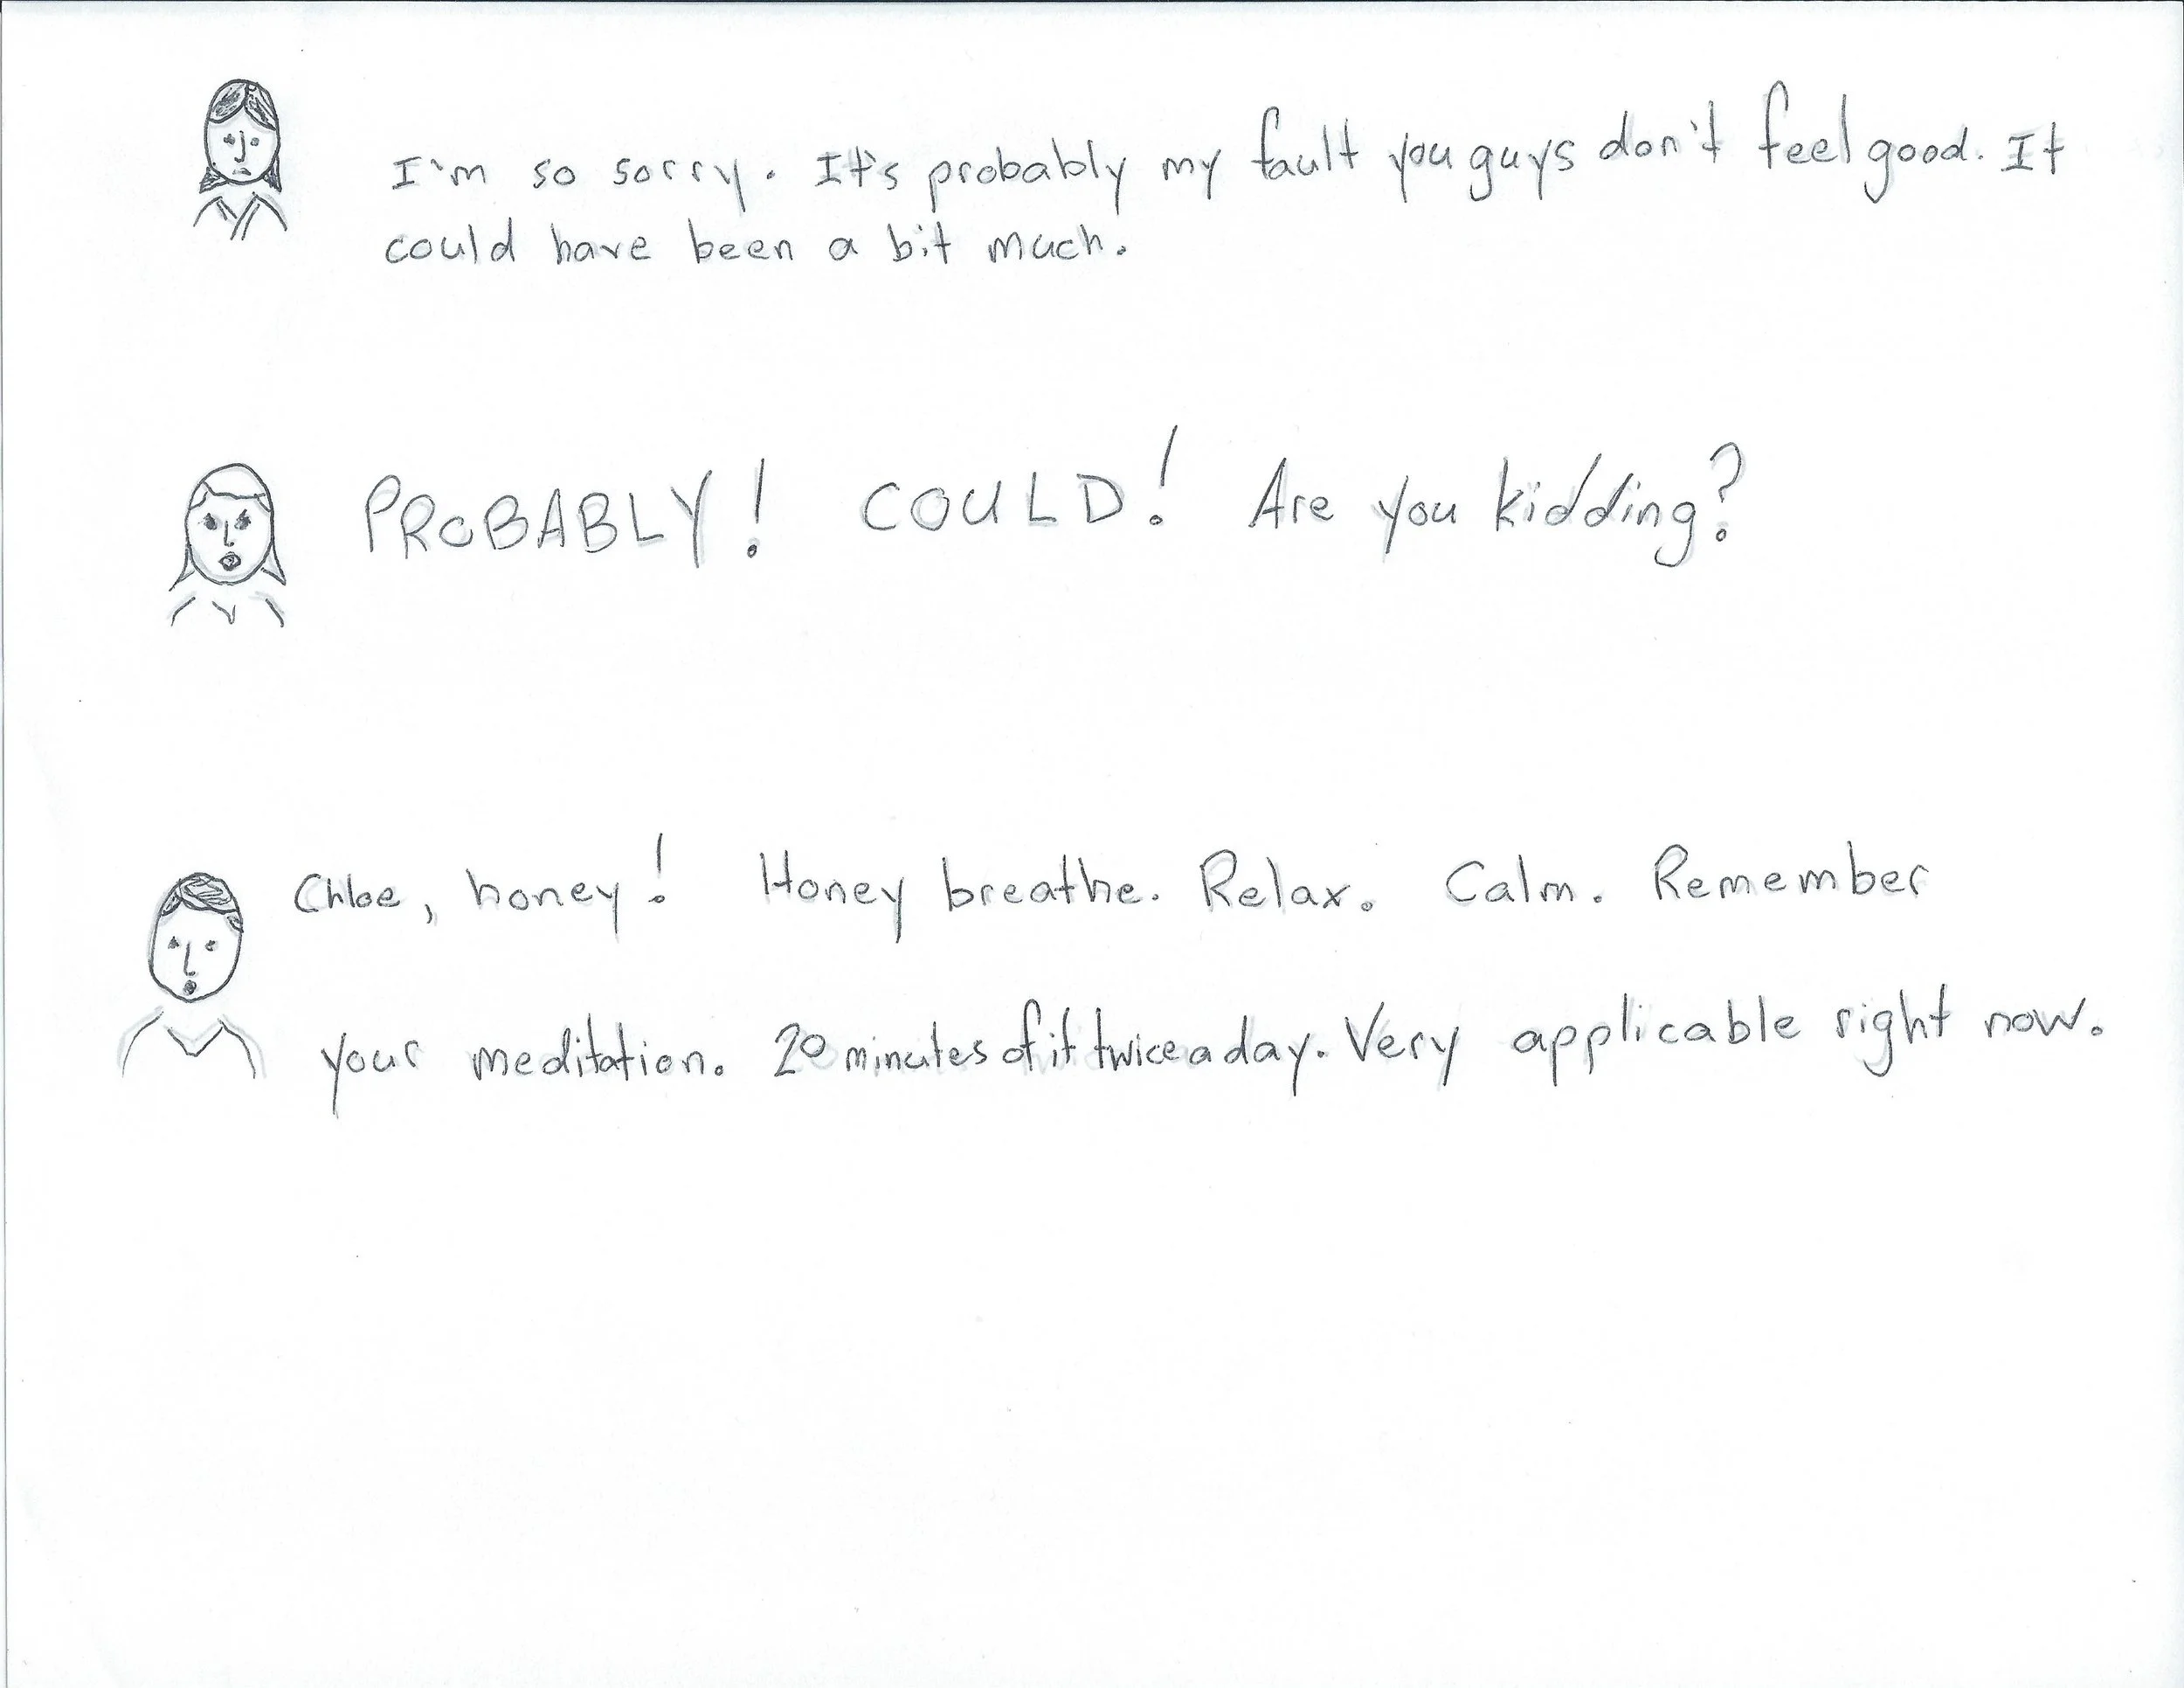 I'm so sorry. It's probably my fault you guys don't feel good. It
could have been a bit much.
PROBABLY! COULD! Are you kidding?
Chloe, honey! Honey breathe. Relax. Calm. Remember
your meditation. 20 minutes of it twice a day. Very applicable right now.